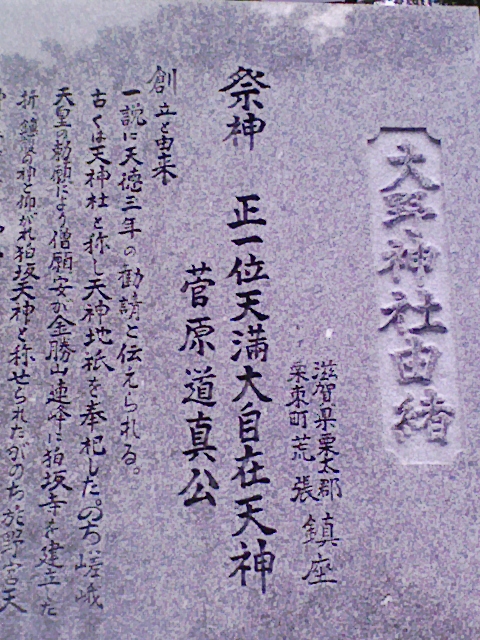 大野神社由緒
滋賀県栗太郡
栗東町荒張
鎮座
祭神 正一位天満大自在天神
菅原道真公
創立と由来
一説に天徳三年の勧請と伝えられる。
古くは天神社と称し天神地祇を奉祀した。のち嵯峨
天皇の勅願により僧願安が金勝山連峰に狛坂寺を建立した
折鎮守の神と仰がれ狛坂天神と称せられたがのち於野宮天